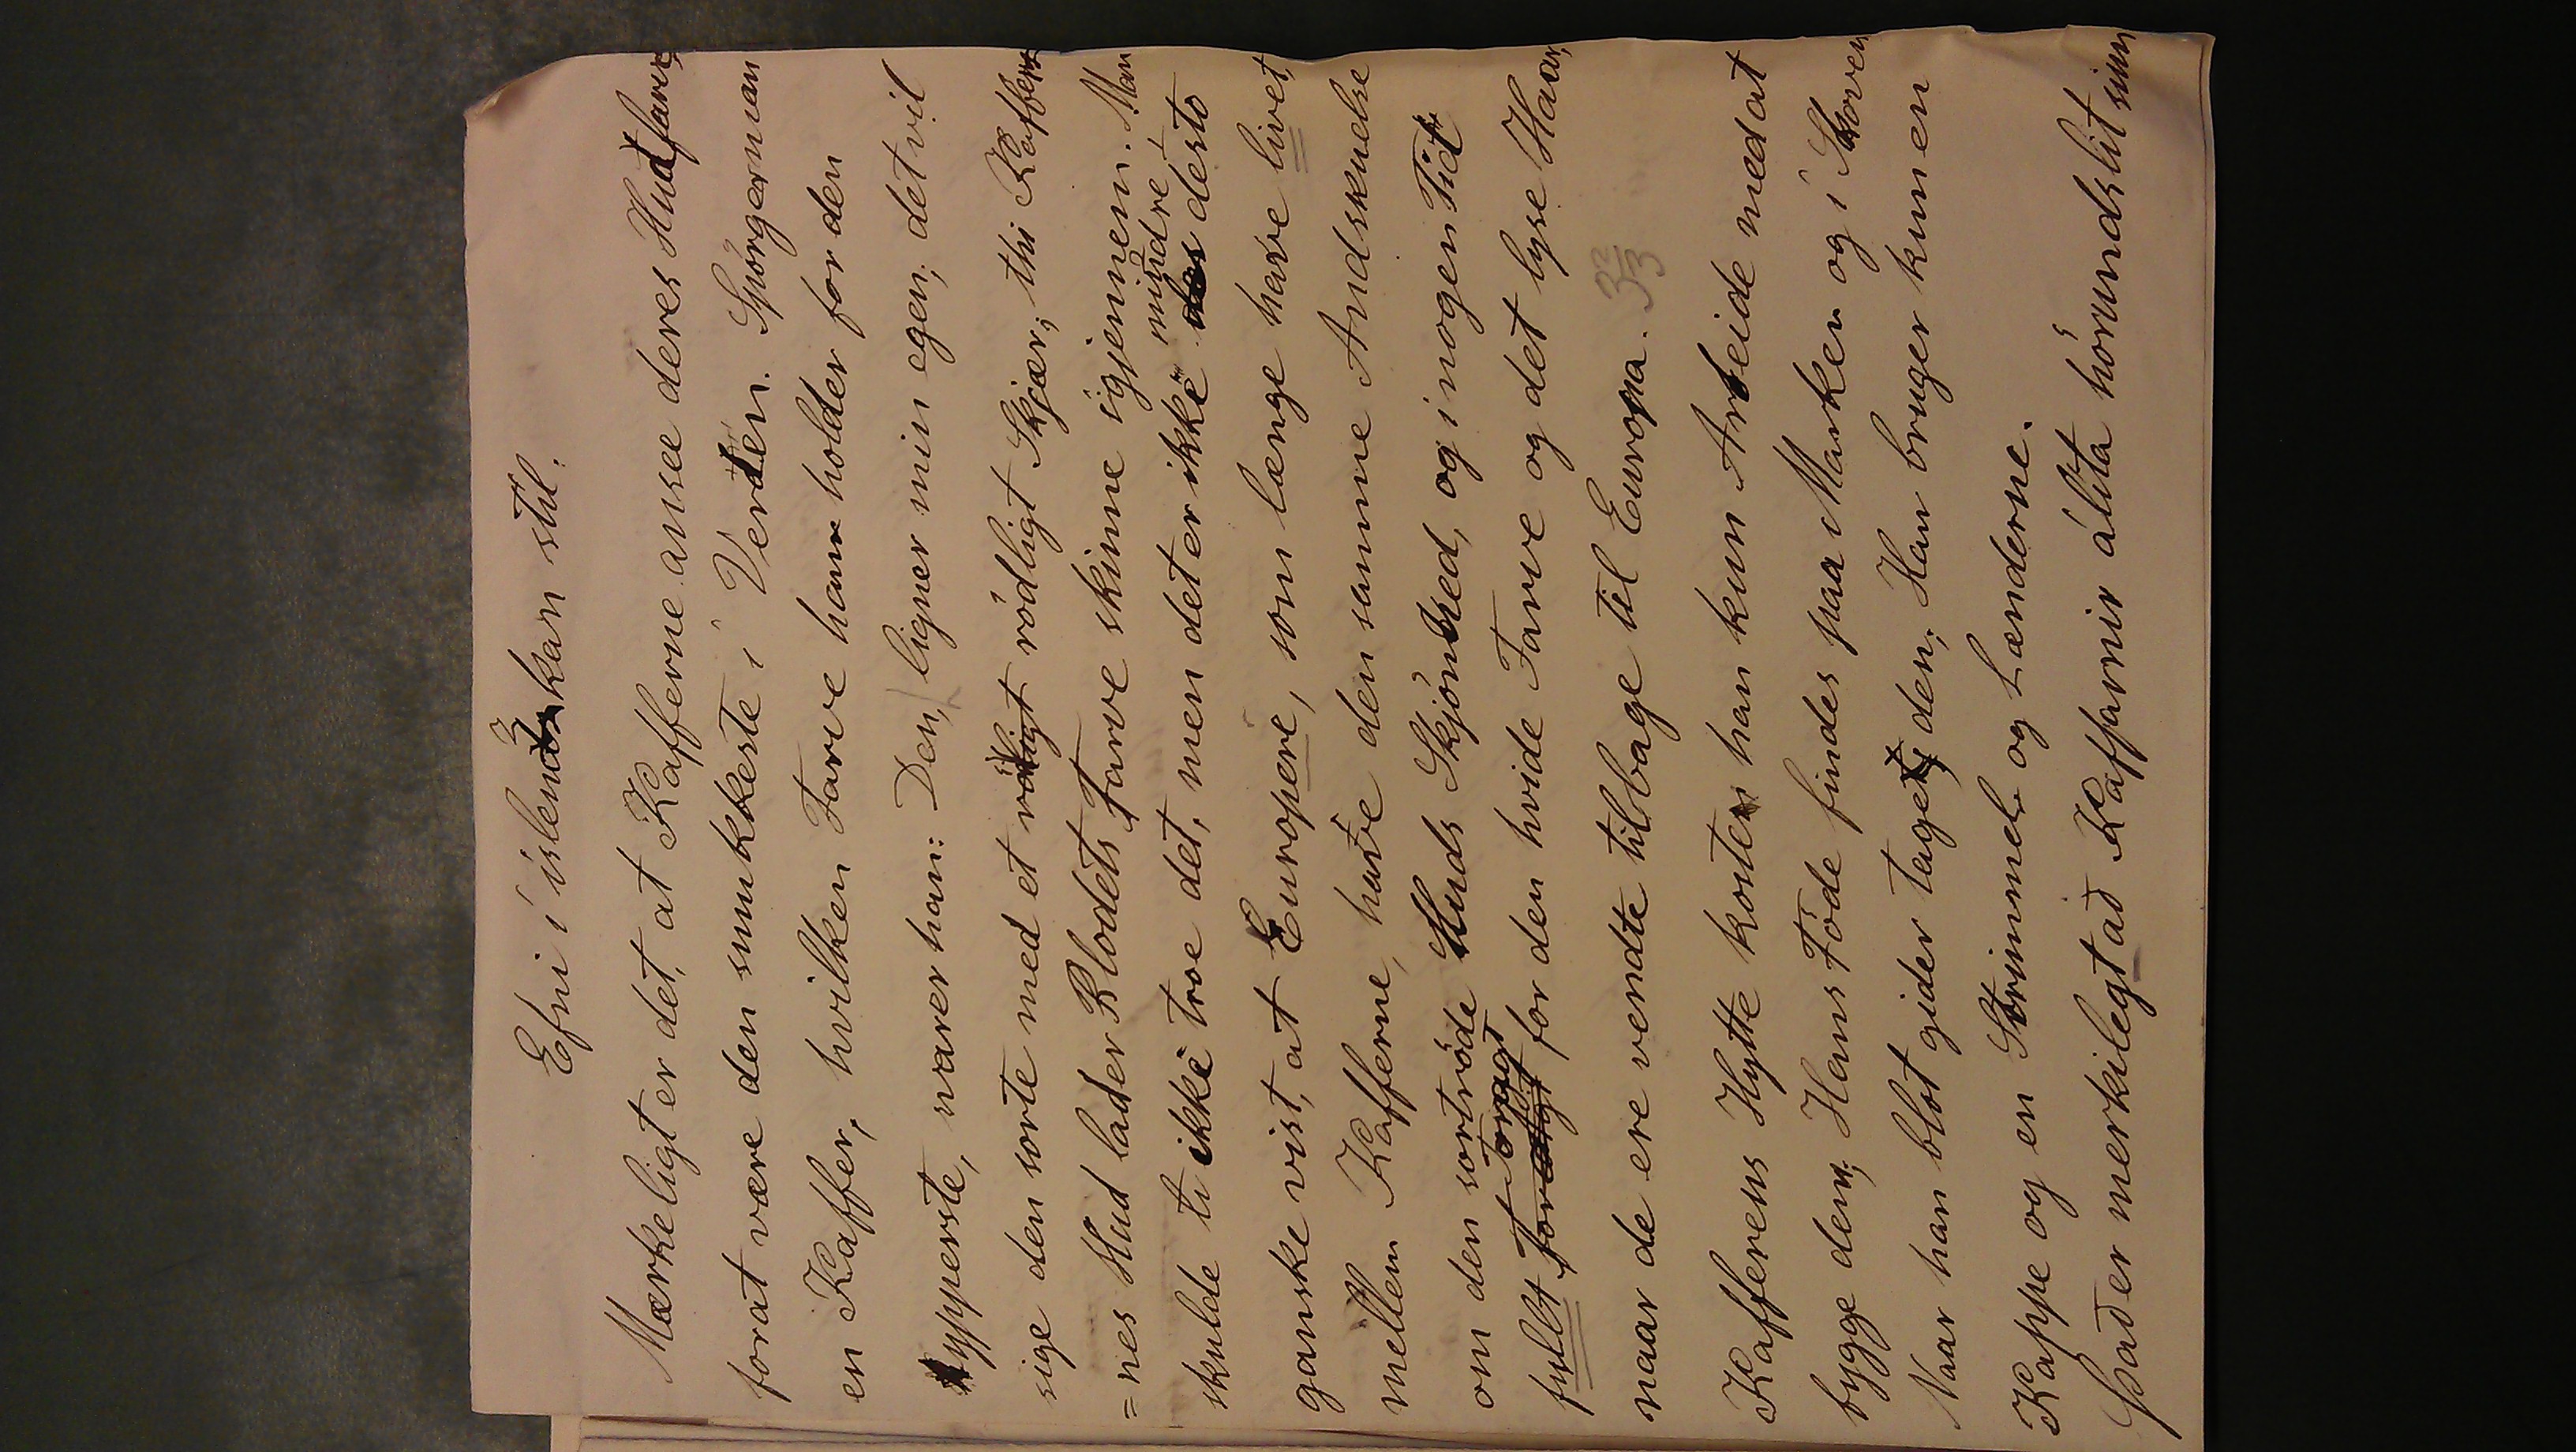 Efni í íslenzkan stíl:
Mærkeligt er det, at Kafferne ansee deres Hudfarve,
forat være den smukkeste i Verden. Spörger man
en Kaffer, hvilken Farve han holder for den
ypperste, svarer han: Den, ligner min egen; det vil
sige den sorte med et rödligt Skjær; thi Kaffer
=nes Hud lader Blodets Farve skinne igjennem. Man
skulde ti ikke troe det, men det er ikke mindre desto
ganske vist, at Europere, som længe have livet,
mellem Kafferne, have den samme Andskuelse
om den sortröde Huds Skjönhed, og i nogen Tid
fyllt Foragt for den hvide Farve og det lyse Haar,
naar de ere vendte tilbage til Europa. 3 2/3
Kafferens Hytte koster han kun Arbeide med at
bygge dem; Hans Föde findes paa Marken og i Skoven
Naar han blot gider taget, den; Han bruger kun en
Kappe og en Strimmel og Lænderne.
Það er merkilegt að Kaffarnir álíta hörundslit sinn